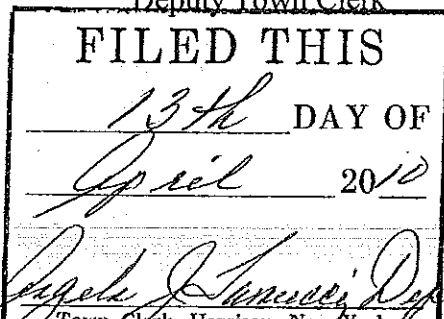 Deputy Town Clerk
FILED THIS
13th DAY OF
April 2010
Angela J. Dep
Town Clerk, Harrison, New York